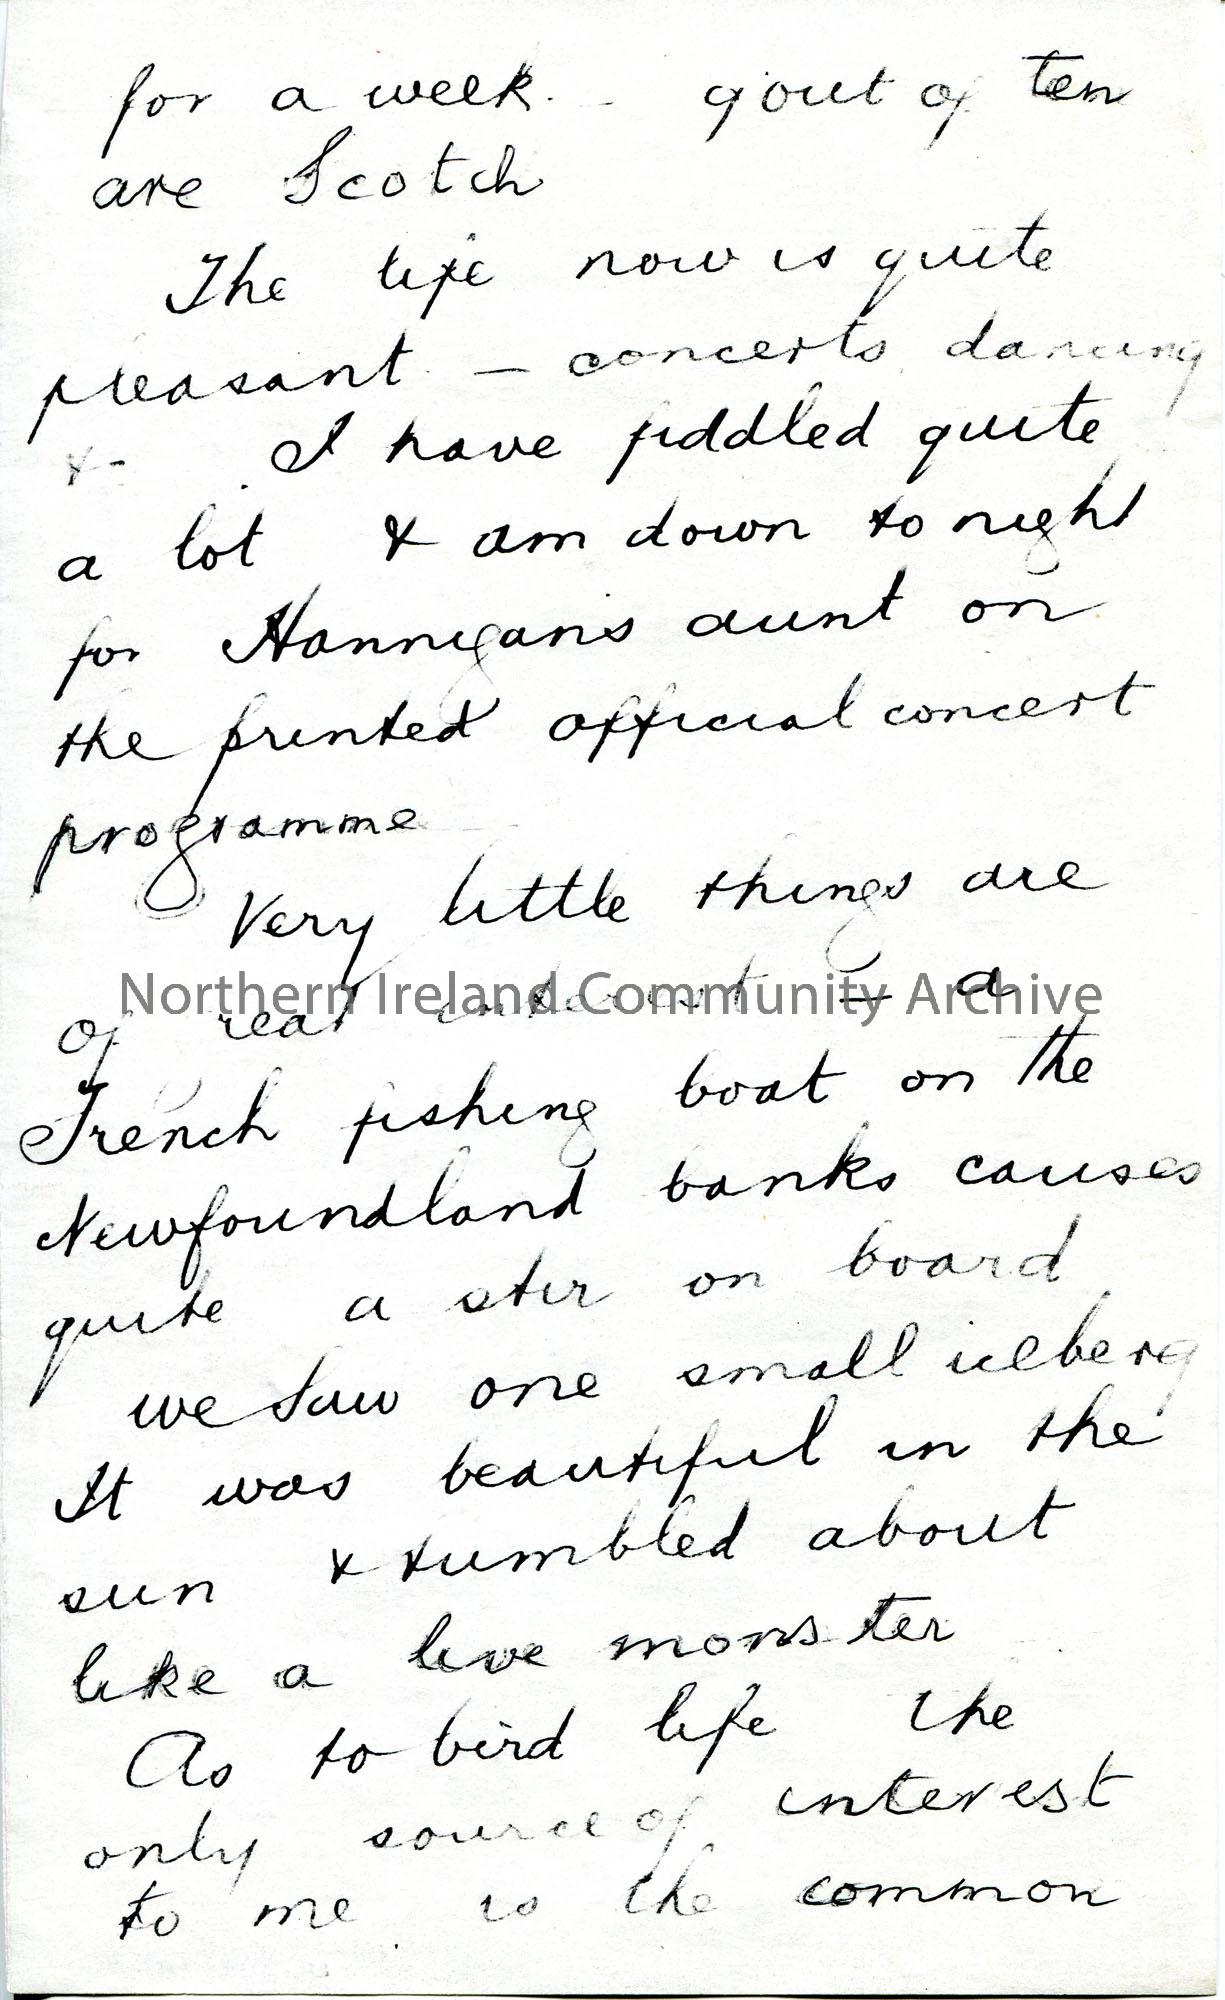 for a week. - 9 out of ten
are Scotch
The life now is quite
pleasant - concerts dancing
&- . I have fiddled quite
a lot & am down to night
for Hannigans aunt on
the printed official concert
programme
Very little things are
of real interest - a
Northern Ireland Community Archive
French fishing boat on the
Newfoundland banks causes
quite a stir on board
we saw one small iceberg
It was beautiful in the
sun & tumbled about
like a live monster
As to bird life the
only source of interest
to me is the common